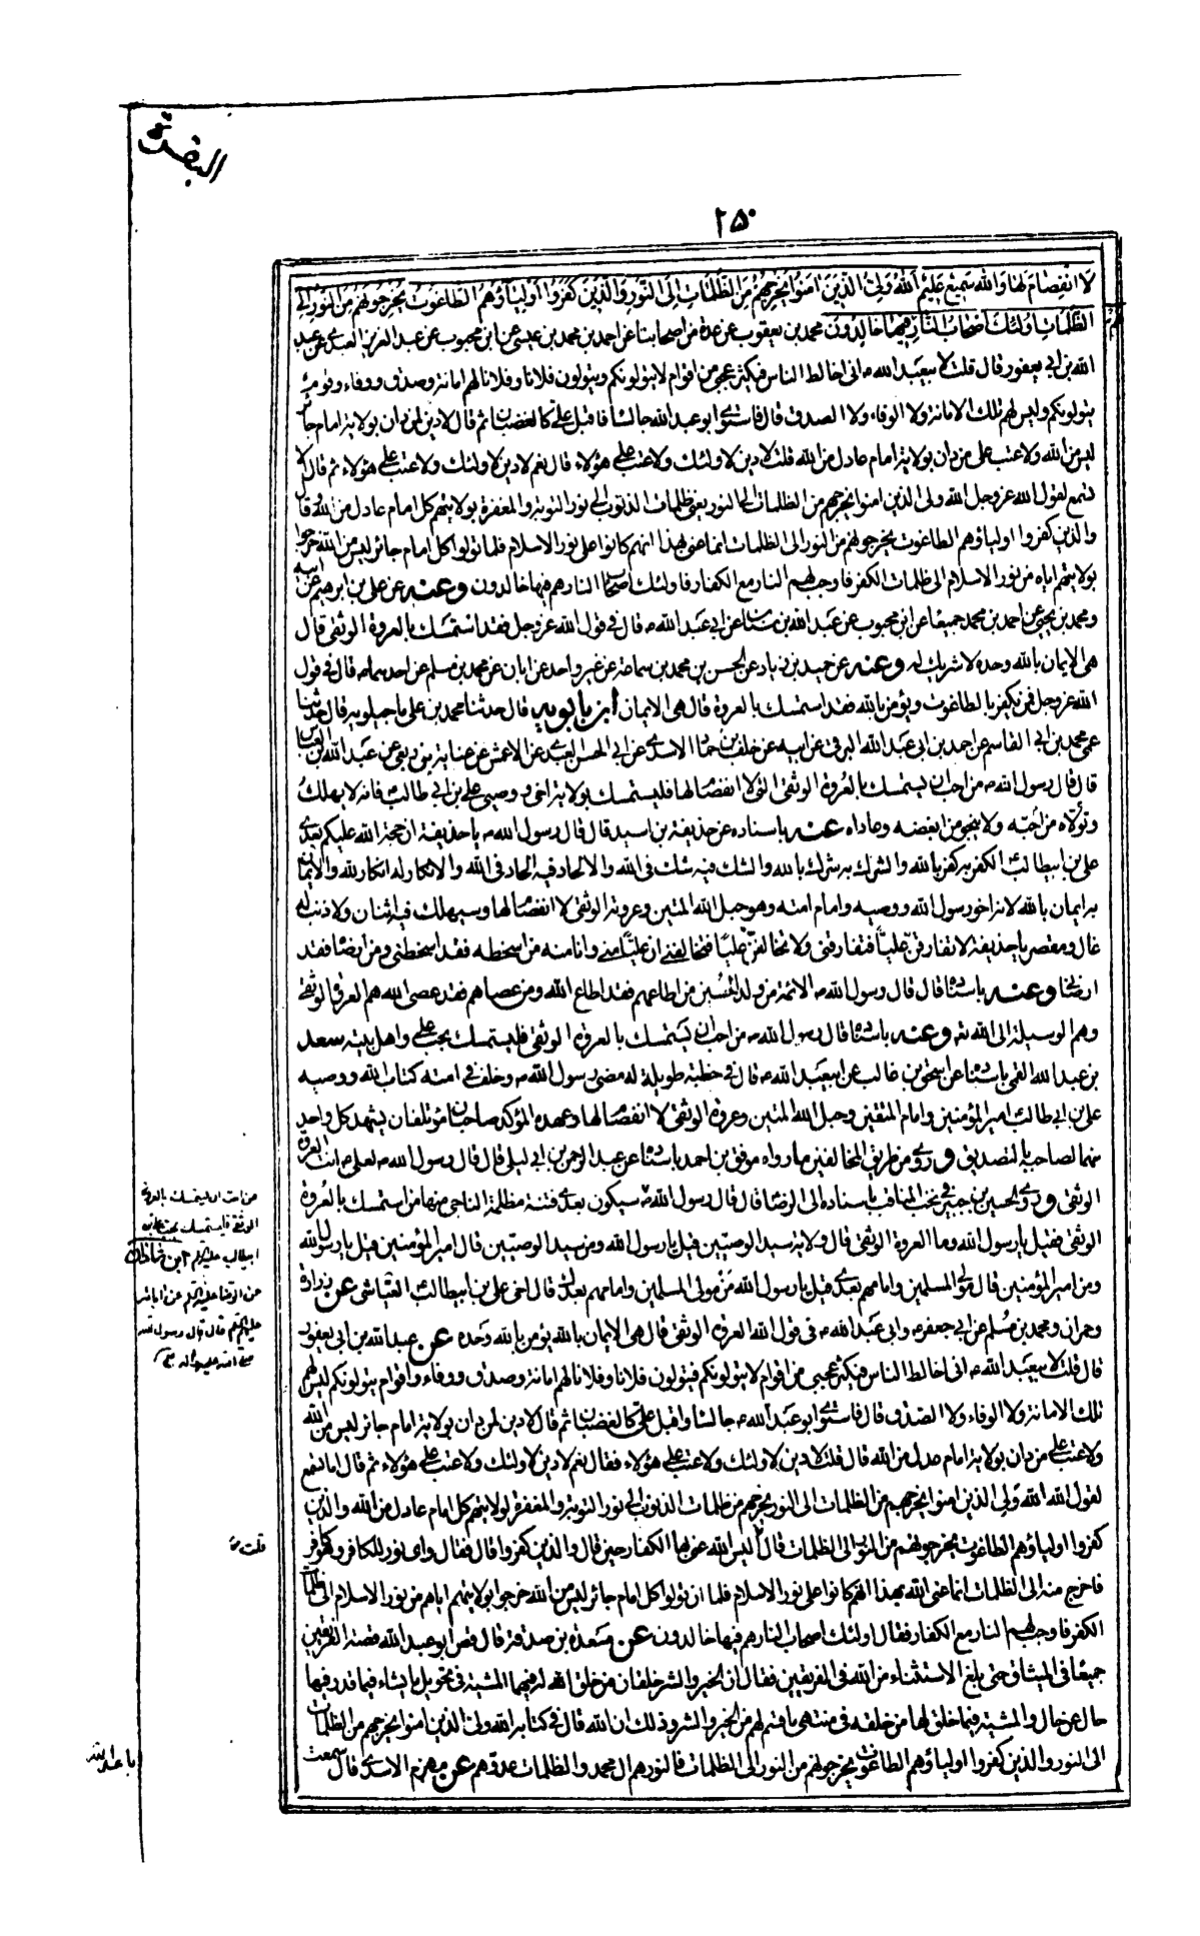 البقرة
٢٥٠
لا انفِصامَ لها وَالله سَميع عَليم اَللهُ وَلِيُّ الَّذينَ امَنوا يُخرِجُهُم مِنَ الظُّلماتِ اِلَى النّورِ وَالَّذينَ كَفَروا اولِياؤُهُم الطّاغوت يُخرِجونَهُم مِنَ النّورِ اِلَى
الظُّلُماتِ اولئِكَ اَصحابُ النّارِ هُم فيها خالِدُونَ محمد بن يعقوب عن عدة من اصحابنا عن احمد بن محمد بن عيسى عن ابن محبوب عن عبد العزيز العبدى عن عبد
الله بن ابي يعفور قال قلت لابيعبد الله ع انى اخالط الناس فيكثر عجبى من اقوام لا يتولونكم ويتولون فلانا وفلانا لهم امانة وصدق ووفاء وقوم
يتولونكم وليس لهم تلك الامانة ولا الوفاء ولا الصدق قال فاستوى ابو عبد الله جالسا فاقبل علىّ كالغضبان ثم قال لا دين لمن دان بولاية امام جائر
ليس من الله ولا عتب على من دان بولاية امام عادل من الله قلت لا دين لاولئك ولا عتب على هؤلاء قال نعم لا دين لاولئك ولا عتب على هؤلاء ثم قال الا
تسمع لقول الله عز وجل الله ولى الذين امنوا يخرجهم من الظلمات الى النور يعنى ظلمات الذنوب الى نور التوبة والمغفرة بولايتهم كل امام عادل من الله وقال
والذين كفروا اولياؤهم الطاغوت يخرجونهم من النور الى الظلمات انما عنى بهذا انهم كانوا على نور الاسلام فلما تولوا كل امام جائر ليس من الله خرجوا
بولايتهم اياه من نور الاسلام الى ظلمات الكفر فاوجب لهم النار مع الكفار فاولئك اصحاب النار هم فيها خالدون وعنه عن على بن ابرهيم عن ابيه
ومحمد بن يحيى عن احمد بن محمد جميعا عن ابن محبوب عن عبد الله بن سنان عن ابي عبد الله ع قال فى قول الله عز وجل فقد استمسك بالعروة الوثقى قال
هى الايمان بالله وحده لا شريك له وعنه عن حميد بن زياد عن الحسن بن محمد بن سماعة عن غير واحد عن ابان عن محمد بن مسلم عن احدهما ع قال فى قول
الله عز وجل فمن يكفر بالطاغوت ويؤمن بالله فقد استمسك بالعروة قال هى الايمان ابن بابويه قال حدثنا محمد بن على ماجيلويه قال حدثنا
عمى محمد بن ابى القاسم عن احمد بن ابى عبد الله البرقى عن ابيه عن خلف بن حماد الاسدى عن ابى الحسن العبدى عن الاعمش عن عباية بن ربعى عن عبد الله بن العباس
قال قال رسول الله ص من احب ان يستمسك بالعروة الوثقى التى لا انفصام لها فليستمسك بولاية اخى ووصيى على بن ابى طالب فانه لا يهلك
وتولاه من احبه ولا ينجو من ابغضه وعاداه عنه باسناده عن حذيفة بن اسيد قال قال رسول الله ص يا حذيفة ان حجة الله عليكم بعدى
على بن ابيطالب الكفر به كفر بالله والشرك به شرك بالله والشك فيه شك فى الله والالحاد فيه الحاد فى الله والانكار له انكار لله والايمان
به ايمان بالله لانه اخو رسول الله ووصيه وامام امته وهو حبل الله المتين وعروته الوثقى لا انفصام لها وسيهلك فيه اثنان ولا ذنب له
غال ومقصر يا حذيفة لا تفارقن عليّا فتفارقنى ولا تخالفن عليّا فتخالفنى ان عليّا منى وانا منه من اسخطه فقد اسخطنى ومن ارضاه فقد
ارضانى وعنه باسناده قال قال رسول الله ص الائمة من ولد الحسين من اطاعهم فقد اطاع الله ومن عصاهم فقد عصى الله هم العروة الوثقى
وهم الوسيلة الى الله تع وعنه باسناده قال قال رسول الله ص من احب ان يستمسك بالعروة الوثقى فليستمسك بحب على واهل بيته سعد
بن عبد الله القمى باسناده عن اسحق بن غالب عن ابيعبد الله ع قال فى خطبة طويلة له مضى رسول الله ص وخلف فى امته كتاب الله ووصيه
على بن ابى طالب امير المؤمنين وامام المتقين وحبل الله المتين وعروة الوثقى لا انفصام لها وعهده المؤكد صاحبان مؤتلفان يشهد كل واحد
منهما لصاحبه بالتصديق وروى من طريق المخالفين ما رواه موفق بن احمد باسناده عن عبد الرحمن بن ابى ليلى قال قال رسول الله ص لعلى ع انت العروة
الوثقى وروى الحسين بن جبير فى نخب المناقب باسناده الى الرضا قال قال رسول الله ص سيكون بعدى فتنة مظلمة الناجى منها من استمسك بالعروة
الوثقى فقيل يا رسول الله وما العروة الوثقى قال ولاية سيد الوصيين قيل يا رسول الله ومن سيد الوصيين قال امير المؤمنين قيل يا رسول الله
ومن امير المؤمنين قال مولى المسلمين وامامهم بعدى قيل يا رسول الله من مولى المسلمين وامامهم بعدك قال اخى على بن ابيطالب العياشى عن زرارة
وحمران ومحمد بن مسلم عن ابى جعفر ع وابى عبد الله ع فى قول الله العروة الوثقى قال هى الايمان بالله يؤمن بالله وحده عن عبد الله بن ابى يعفور
قال قلت لابيعبد الله ع انى اخالط الناس فيكثر عجبى من اقوام لا يتولونكم فيتولون فلانا وفلانا لهم امانة وصدق ووفاء واقوام يتولونكم ليس لهم
تلك الامانة ولا الوفاء ولا الصدق قال فاستوى ابو عبد الله ع جالسا واقبل علىّ كالغضبان ثم قال لا دين لمن دان بولاية امام جائر ليس من الله
ولا عتب على من دان بولاية امام عدل من الله قال قلت لا دين لاولئك ولا عتب على هؤلاء فقال نعم لا دين لاولئك ولا عتب على هؤلاء ثم قال اما تسمع
لقول الله الله ولى الذين امنوا يخرجهم من الظلمات الى النور يخرجهم من ظلمات الذنوب الى نور التوبة والمغفرة لولايتهم كل امام عادل من الله والذين
كفروا اولياؤهم الطاغوت يخرجونهم من النور الى الظلمات قال اليس الله عنى بها الكفار حين قال والذين كفروا قال فقال واى نور للكافر وهو كافر
فاخرج منه الى الظلمات انما عنى الله بهذا انهم كانوا على نور الاسلام فلما ان تولوا كل امام جائر ليس من الله خرجوا بولايتهم اياهم من نور الاسلام الى ظلمات
الكفر فاوجب لهم النار مع الكفار فقال اولئك اصحاب النار هم فيها خالدون عن مسعدة بن صدقة قال قص ابو عبد الله قصة الفريقين
جميعا فى الميثاق حتى بلغ الاستثناء من الله فى الفريقين فقال ان الخير والشر خلقان من خلق الله له فيهما المشية فى تحويل ما يشاء فيما قدر فيها
حال عن حال والمشية فيما خلق لها من خلقه فى منتهى ما قسم لهم من الخير والشر وذلك ان الله قال فى كتابه الله ولى الذين امنوا يخرجهم من الظلمات
الى النور والذين كفروا اولياؤهم الطاغوت يخرجونهم من النور الى الظلمات فالنور هم ال محمد والظلمات عدوهم عن مهزم الاسدى قال سمعت
من احب ان يستمسك بالعروة
الوثقى فليستمسك بحب على بن
ابيطالب عليه السلام ابن شاذان
عن الرضا عليه السلام عن ابائه
عليهم السلام قال قال رسول الله
صلى الله عليه واله
قلت
با عبد الله